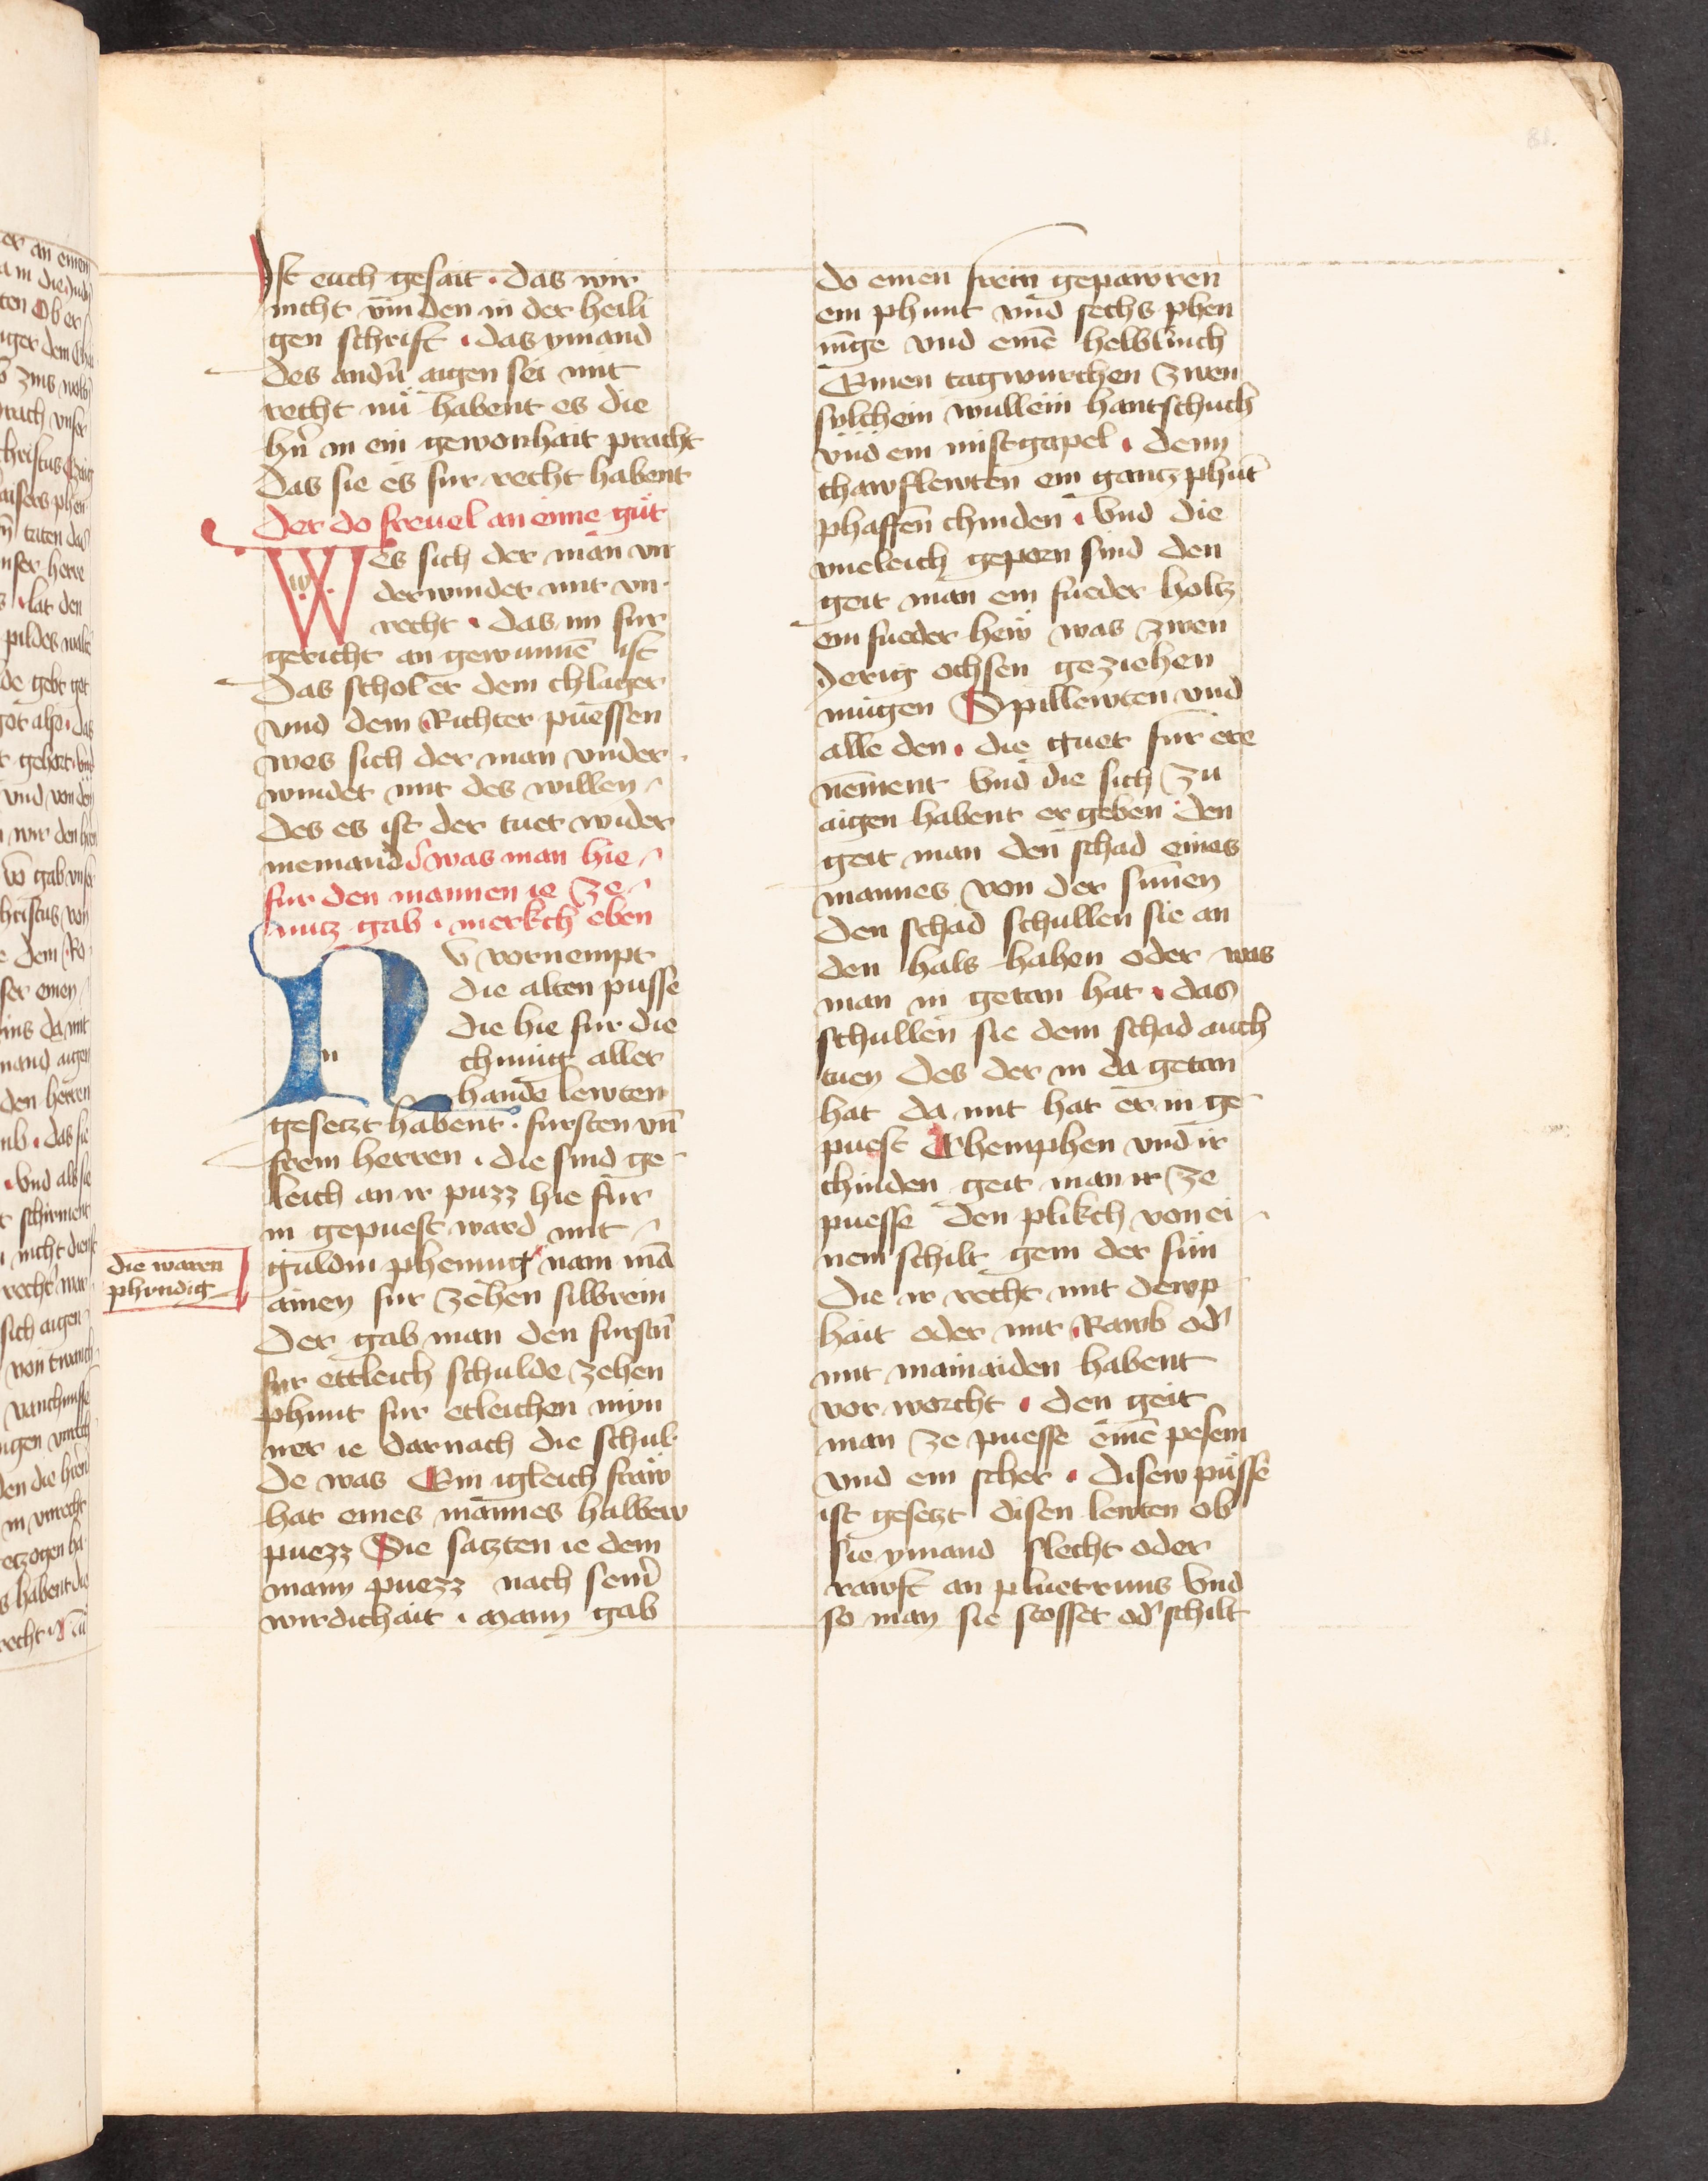 Ist euch gesait · das wir
nicht vinden in der heili
gen schrift · das ymand
des andn̄ aigen sei mit
recht nu habent es die
hn̄ in ein gewonhait pracht
das sie es fur recht habent
der do freuel an eime gut
Wes sich der man vn
derwindet mit vn
recht · das im fur
gericht an gewunnē ist
das schol er dem chlager
vnd dem Richter puessen
wes sich der man vnder
windet mit des willen
des es ist der tuet wider
niemand was man hie
fur den mannen ie ze
nutz gab · merkch eben
NU vornempt
die alten pusse
die hie fur die
chunig aller
hande lewten
gesetzt habent · fursten vn̄
frein herren · die sind ge
leich an ir puzz hie fur
in gepuest ward mit
guldin phennig nam mā
ainen fur zehen silbrein
der gab man den furstn̄
fur ettleich schulde zehen
phunt fur etleichen myn
ner ie darnach die schul
de was Ein igleich fraw
hat eines mannes halbew
puezz Die satzten ie dem
mann puezz nach seinr̄
wirdichait · mann gab
die waren
phundig
do einen frein gepawren
ein phunt vnd sechs phen
nīge vnd einē helblinch
Einen tagwurchen zwen
sylchein wullein hantschuch
vnd ein mistgapel · denn
chawflewten ein gantz phūt
phaffen chinden · vnd die
vneleich geporn sind den
geit man ein fueder holtz
ein fueder hew was zwen
Jerig ochsen geziehen
mugen Spillewten vnd
alle den · die guet fur ere
nement vnd die sich zu
aigen habent er geben den
geit man den schad eines
mannes von der sunnen
den schad schullen sie an
den hals hahen oder was
man in getan hat · das
schullen sie dem schad auch
tuen des der in da getan
hat da mit hat er in ge
puest Chemphen vnd ir
chinden geit man ir ze
puesse den plikch von ei
nem schilt gem der sun
die ir recht mit dewp
hait oder mit Rawb odr̄
mit mainaiden habent
vor worcht · den geit
man ze puesse einē pesem
vnd ein scher · disew pusse
ist gesetzt disen lewten ob
sie ymand slecht oder
rawft an pluetruns vnd
so man sie stosset odr̄ schilt